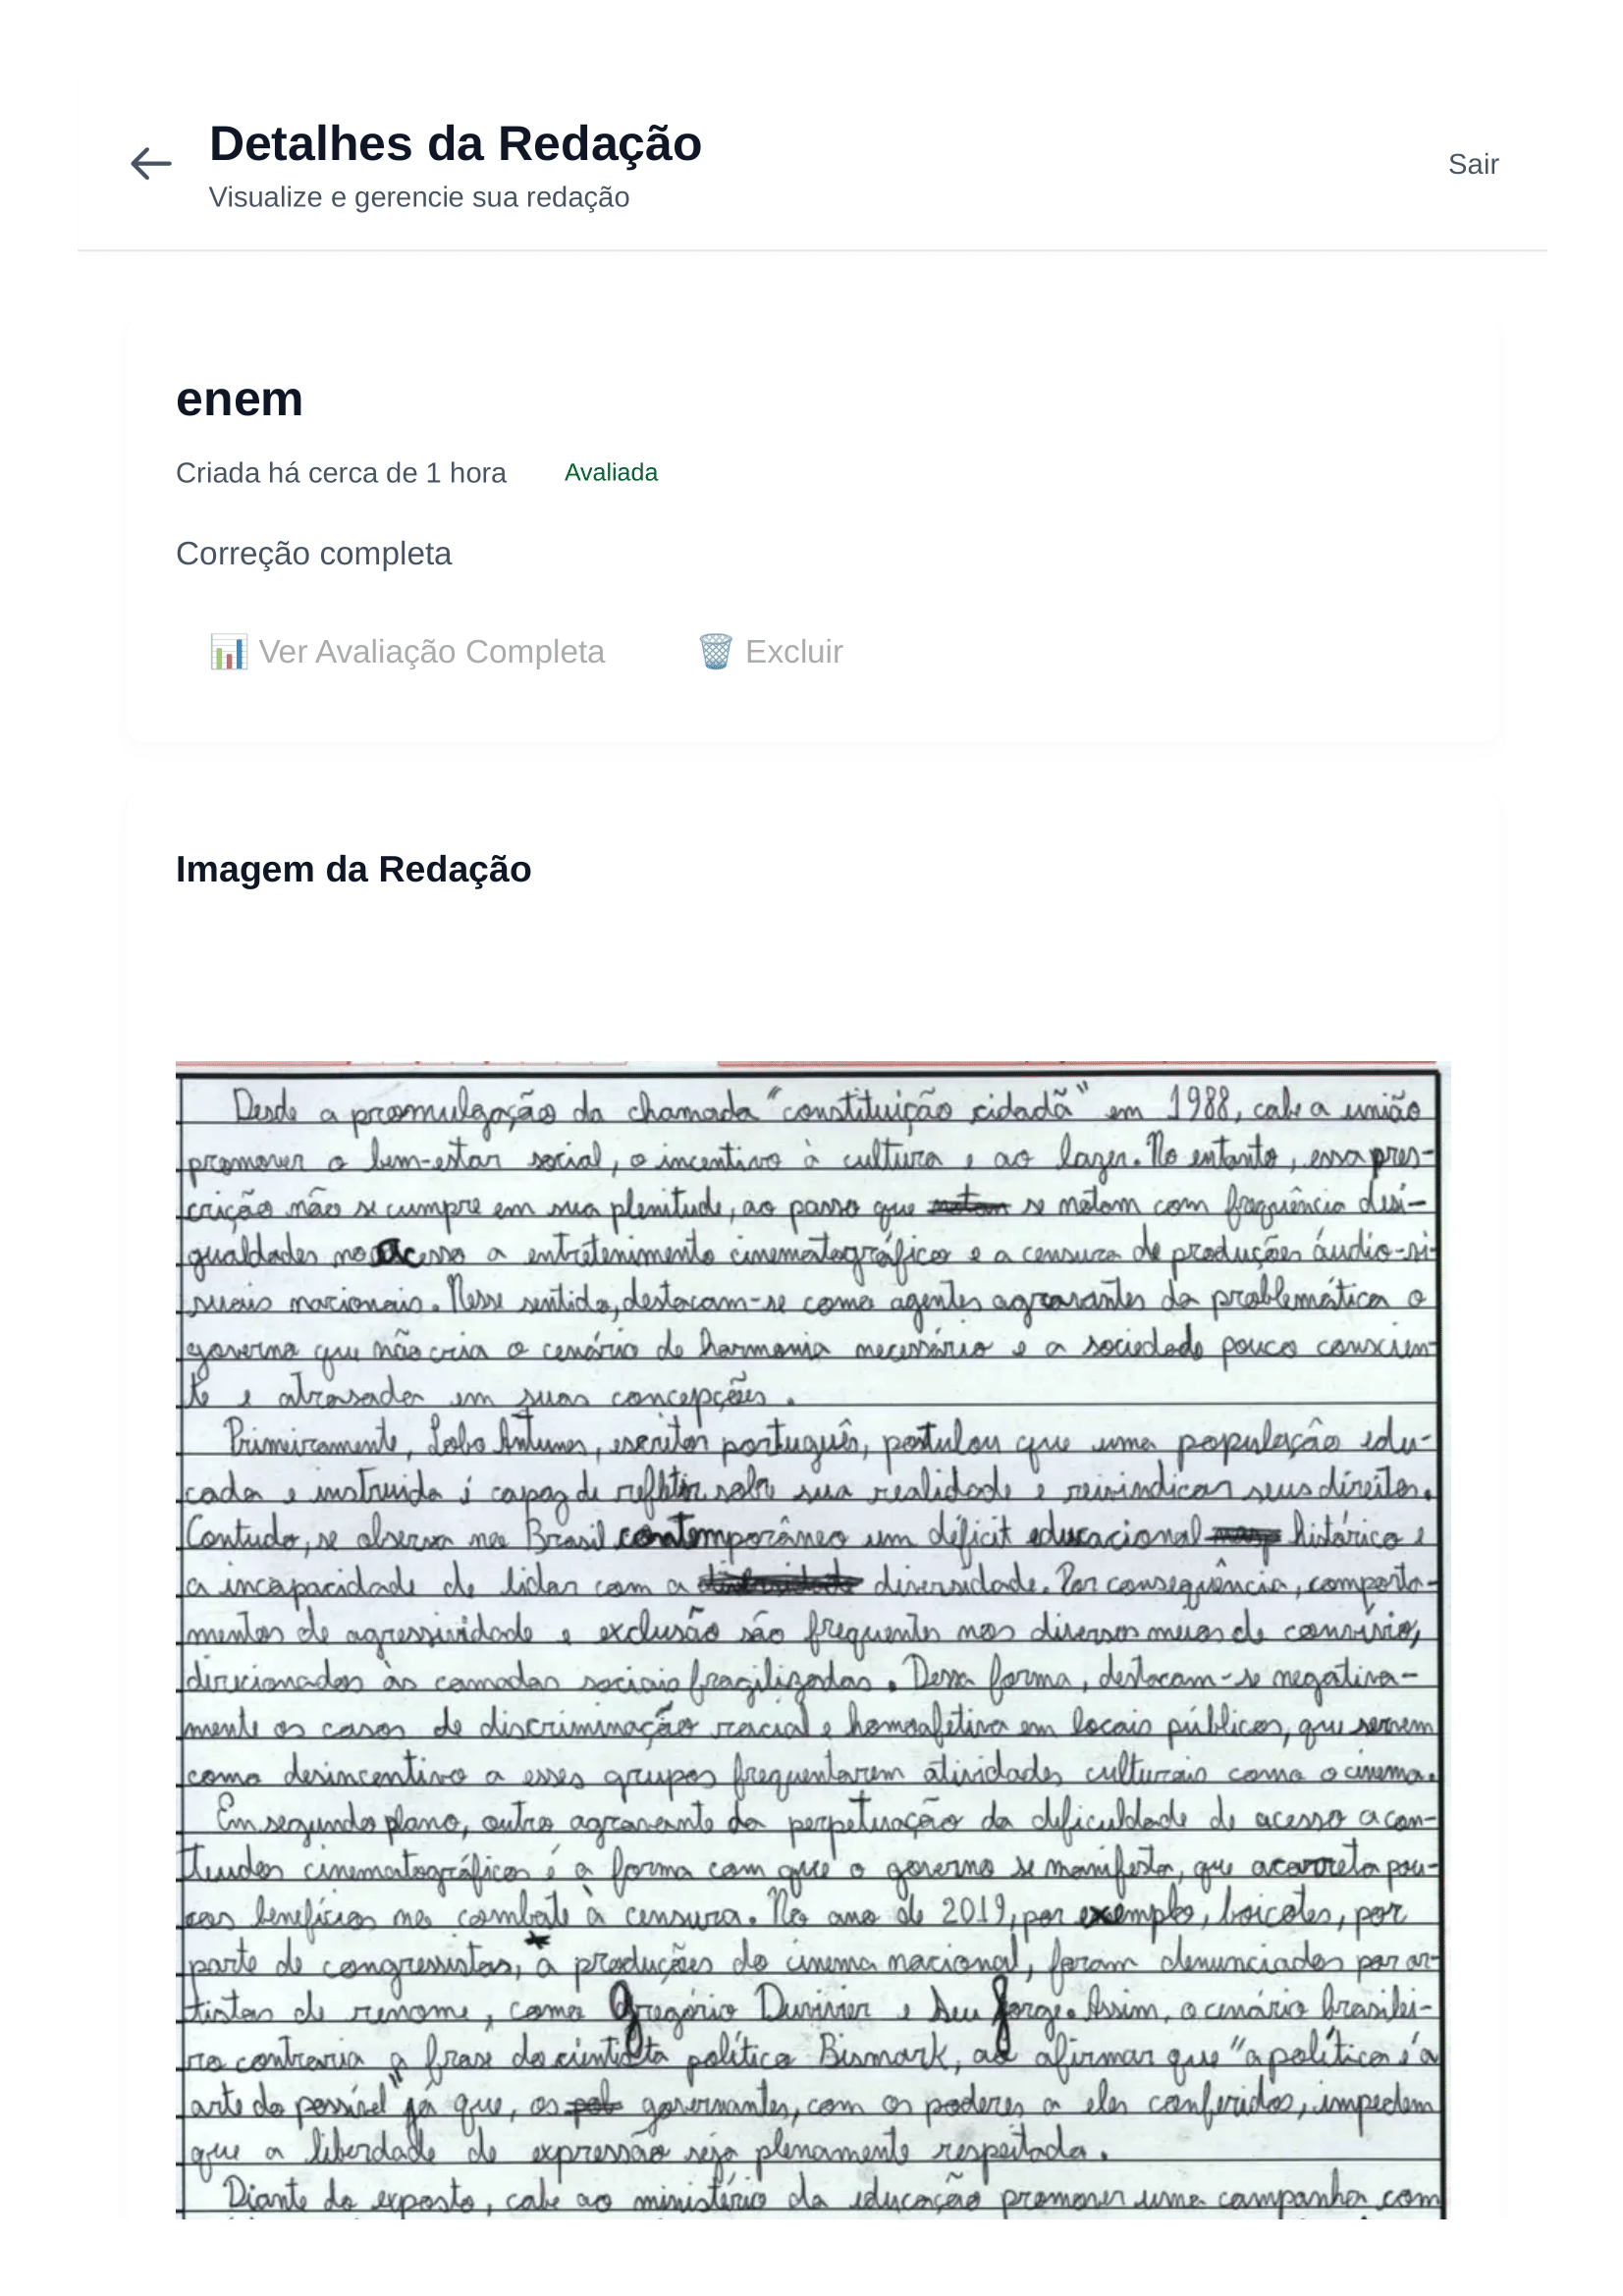 Detalhes da Redação
Visualize e gerencie sua redação
Sair
enem
Criada há cerca de 1 hora Avaliada
Correção completa
📊 Ver Avaliação Completa 🗑️ Excluir
Imagem da Redação
Desde a promulgação da chamada "constituição cidadã" em 1988, cabe a união
promover o bem-estar social, o incentivo à cultura e ao lazer. No entanto, essa pres-
crição não se cumpre em sua plenitude, ao passo que se notam com frequência desi-
gualdades no acesso a entretenimento cinematográfico e a censura de produções áudio-vi-
suais nacionais. Nesse sentido, destacam-se como agentes agravantes da problemática o
governo que não cria o cenário de harmonia necessário e a sociedade pouco conscien-
te e atrasada em suas concepções.
Primeiramente, Lobo Antunes, escritor português, postulou que uma população edu-
cada e instruida é capaz de refletir sobre sua realidade e reivindicar seus direitos.
Contudo, se observa no Brasil contemporâneo um déficit educacional histórico e
a incapacidade de lidar com a diversidade. Por consequência, comporta-
mentos de agressividade e exclusão são frequentes nos diversos meios de convívio,
direcionados às camadas sociais fragilizadas. Dessa forma, destacam-se negativa-
mente os casos de discriminação racial e homoafetiva em locais públicos, que servem
como desincentivo a esses grupos frequentarem atividades culturais como o cinema.
Em segundo plano, outro agravante da perpetuação da dificuldade de acesso a con-
teudos cinematográficos é a forma com que o governo se manifesta, que acarreta pou-
cos benefícios no combate à censura. No ano de 2019, por exemplo, boicotes, por
parte de congressistas, a produções do cinema nacional, foram denunciados por ar-
tistas de renome, como Gregório Duvivier e Seu Jorge. Assim, o cenário brasilei-
ro contraria a frase do cientista político Bismark, ao afirmar que "a política é a
arte do possível" já que, os governantes, com os poderes a eles conferidos, impedem
que a liberdade de expressão seja plenamente respeitada.
Diante do exposto, cabe ao ministério da educação promover uma campanha com